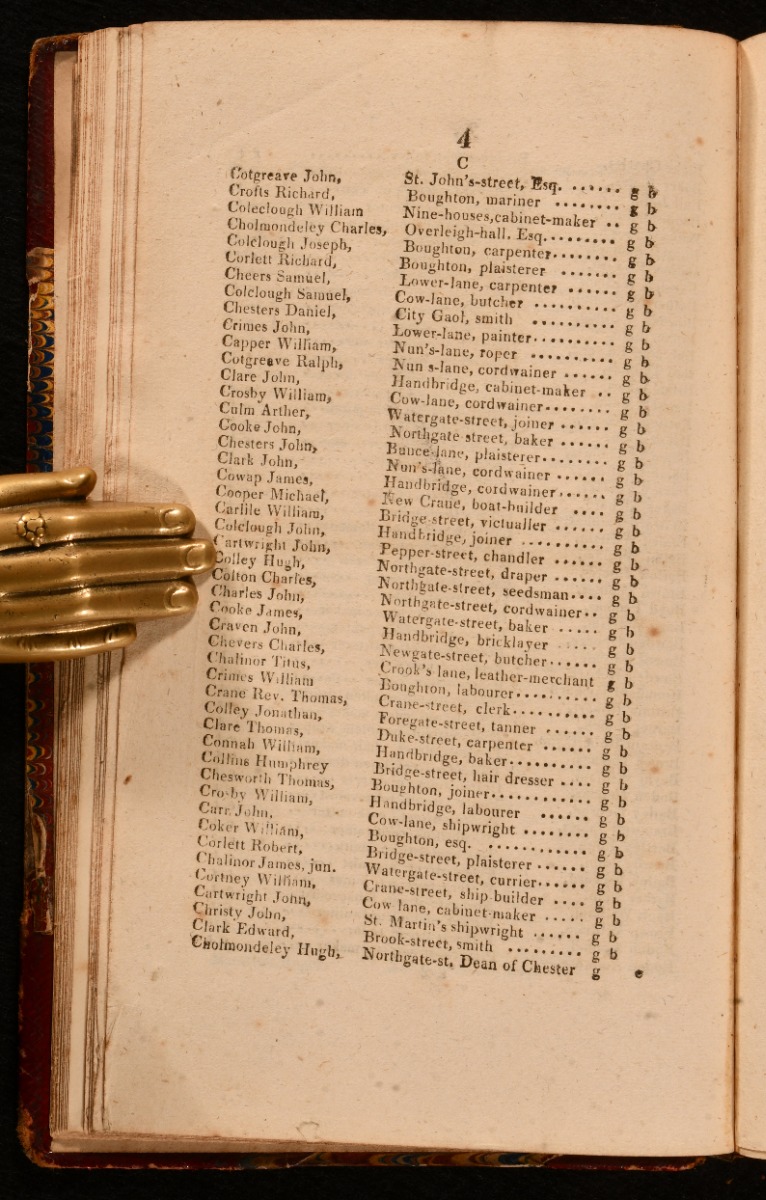 4
C
Cotgreave John, St. John's-street, Esq. ...... g b
Crofts Richard, Boughton, mariner ........ g b
Coleclough William Nine-houses,cabinet-maker .. g b
Cholmondeley Charles, Overleigh-hall. Esq.......... g b
Colclough Joseph, Boughton, carpenter........ g b
Corlett Richard, Boughton, plaisterer ....... g b
Cheers Samuel, Lower-lane, carpenter ...... g b
Colclough Samuel, Cow-lane, butcher .......... g b
Chesters Daniel, City Gaol, smith .......... g b
Crimes John, Lower-lane, painter.......... g b
Capper William, Nun's-lane, roper .......... g b
Cotgreave Ralph, Nun s-lane, cordwainer ...... g b
Clare John, Handbridge, cabinet-maker .. g b
Crosby William, Cow-lane, cordwainer........ g b
Culm Arther, Watergate-street, joiner ...... g b
Cooke John, Northgate street, baker ...... g b
Chesters John, Bunce-lane, plaisterer........ g b
Clark John, Nun's-lane, cordwainer ...... g b
Cowap James, Handbridge, cordwainer...... g b
Cooper Michael, New Crane, boat-builder .... g b
Carlile William, Bridge-street, victualler ...... g b
Colclough John, Handbridge, joiner .......... g b
Cartwright John, Pepper-street, chandler ...... g b
Colley Hugh, Northgate-street, draper ...... g b
Colton Charles, Northgate-street, seedsman.... g b
Charles John, Northgate-street, cordwainer.. g b
Cooke James, Watergate-street, baker ..... g b
Craven John, Handbridge, bricklayer ..... g b
Chevers Charles, Newgate-street, butcher...... g b
Chalinor Titus, Crook's lane, leather-merchant g b
Crimes William Boughton, labourer.......... g b
Crane Rev. Thomas, Crane-street, clerk.......... g b
Colley Jonathan, Foregate-street, tanner ...... g b
Clare Thomas, Duke-street, carpenter ...... g b
Connah William, Handbridge, baker.......... g b
Collins Humphrey Bridge-street, hair dresser .... g b
Chesworth Thomas, Boughton, joiner............ g b
Crosby William, Handbridge, labourer ...... g b
Carr John, Cow-lane, shipwright ........ g b
Coker William, Boughton, esq. ............ g b
Corlett Robert, Bridge-street, plaisterer ...... g b
Chalinor James, jun. Watergate-street, currier...... g b
Cortney William, Crane-street, ship-builder .... g b
Cartwright John, Cow lane, cabinet-maker ..... g b
Christy John, St. Martin's shipwright ...... g b
Clark Edward, Brook-street, smith ......... g b
Cholmondeley Hugh, Northgate-st. Dean of Chester g e